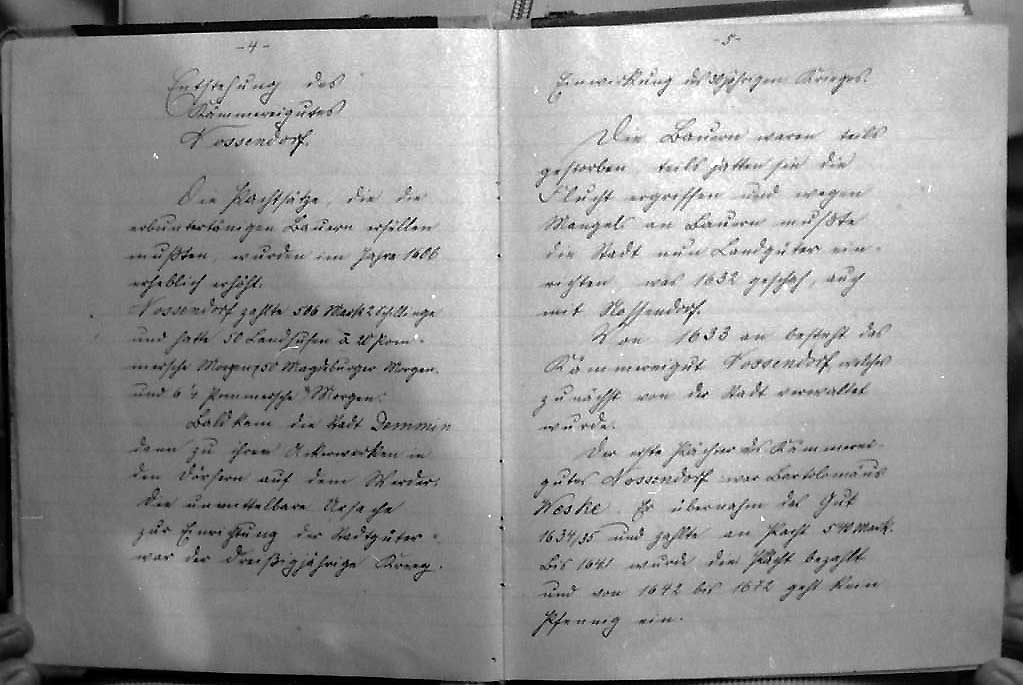 -4-
Entstehung des
Kämmereigutes
Nossendorf.
Die Pachtsätze, die die
erbuntertänigen Bauern erfüllen
mußten, wurden im Jahre 1606
erheblich erhöht.
Nossendorf zahlte 506 Mark 2 Schillinge
und hatte 50 Landhufen à 20 Pom-
mersche Morgen, 50 Magdeburger Morgen.
und 6 Pommersche Morgen.
Bald kam die Stadt Demmin
dann zu ihren Ackerwerken in
den Dörfern auf dem Werder.
Die unmittelbare Ursache
zur Einrichtung der Stadtgüter
war der Dreißigjährige Krieg.
-5-
Einwirkung des 30jährigen Krieges.
Die Bauern waren teils
gestorben, teils hatten sie die
Flucht ergriffen und wegen
Mangels an Bauern mußte
die Stadt nun Landgüter ein-
richten, was 1632 geschah, auch
mit Nossendorf.
Von 1633 an besteht das
Kämmereigut Nossendorf, welches
zunächst von der Stadt verwaltet
wurde.
Der erste Pächter des Kämmerei-
gutes Nossendorf war Bartolomäus
Weske. Er übernahm das Gut
1634/35 und zahlte an Pacht 540 Mark.
Bis 1641 wurde die Pacht bezahlt
und von 1642 bis 1672 geht kein
Pfennig ein.